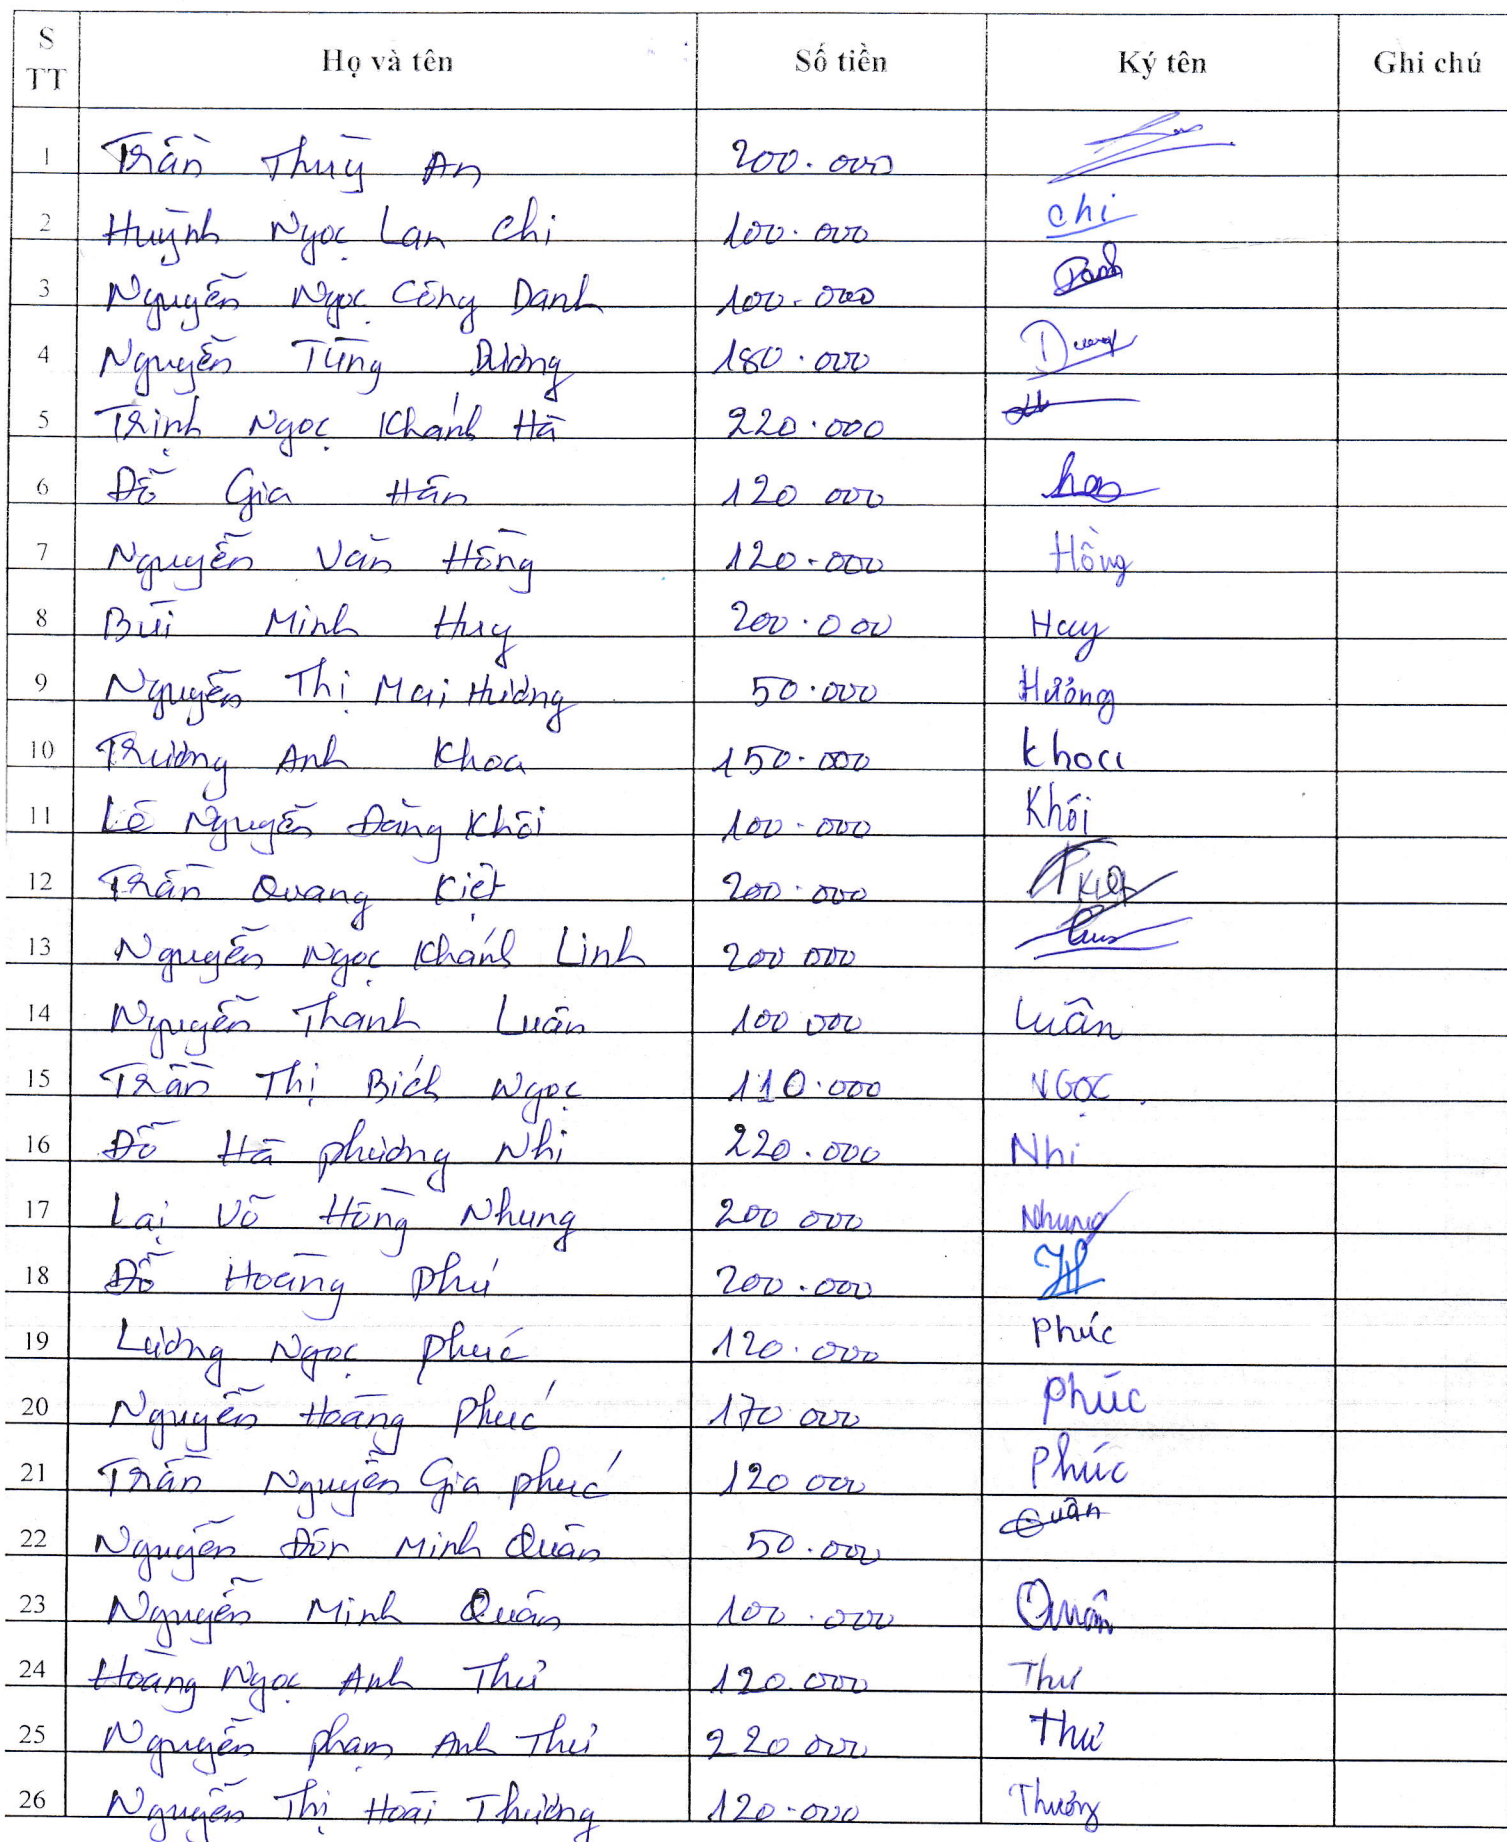 STT Họ và tên Số tiền Ký tên Ghi chú
1 Trần Thuỳ An 200.000
2 Huỳnh Ngọc Lan Chi 100.000 chi
3 Nguyễn Ngọc Công Danh 100.000 Danh
4 Nguyễn Tùng Dương 180.000 Dương
5 Trịnh Ngọc Khánh Hà 220.000
6 Đỗ Gia Hân 120 000 han
7 Nguyễn Văn Hồng 120.000 Hồng
8 Bùi Minh Huy 200.000 Huy
9 Nguyễn Thị Mai Hương 50.000 Hương
10 Trương Anh Khoa 150.000 khoa
11 Lê Nguyễn Đăng Khôi 100.000 Khôi
12 Trần Quang Kiệt 200.000 Kiệt
13 Nguyễn Ngọc Khánh Linh 200 000
14 Nguyễn Thanh Luân 100 000 Luân
15 Trần Thị Bích Ngọc 110.000 NGỌC
16 Đỗ Hà Phương Nhi 220.000 Nhi
17 Lại Võ Hồng Nhung 200 000 Nhung
18 Đỗ Hoàng Phú 200.000
19 Lương Ngọc Phúc 120.000 Phúc
20 Nguyễn Hoàng Phúc 170 000 Phúc
21 Trần Nguyễn Gia Phúc 120 000 Phúc
22 Nguyễn Đôn Minh Quân 50.000 Quân
23 Nguyễn Minh Quân 100.000 Quân
24 Hoàng Ngọc Anh Thư 120.000 Thư
25 Nguyễn Phạm Anh Thư 220 000 Thư
26 Nguyễn Thị Hoài Thương 120.000 Thương